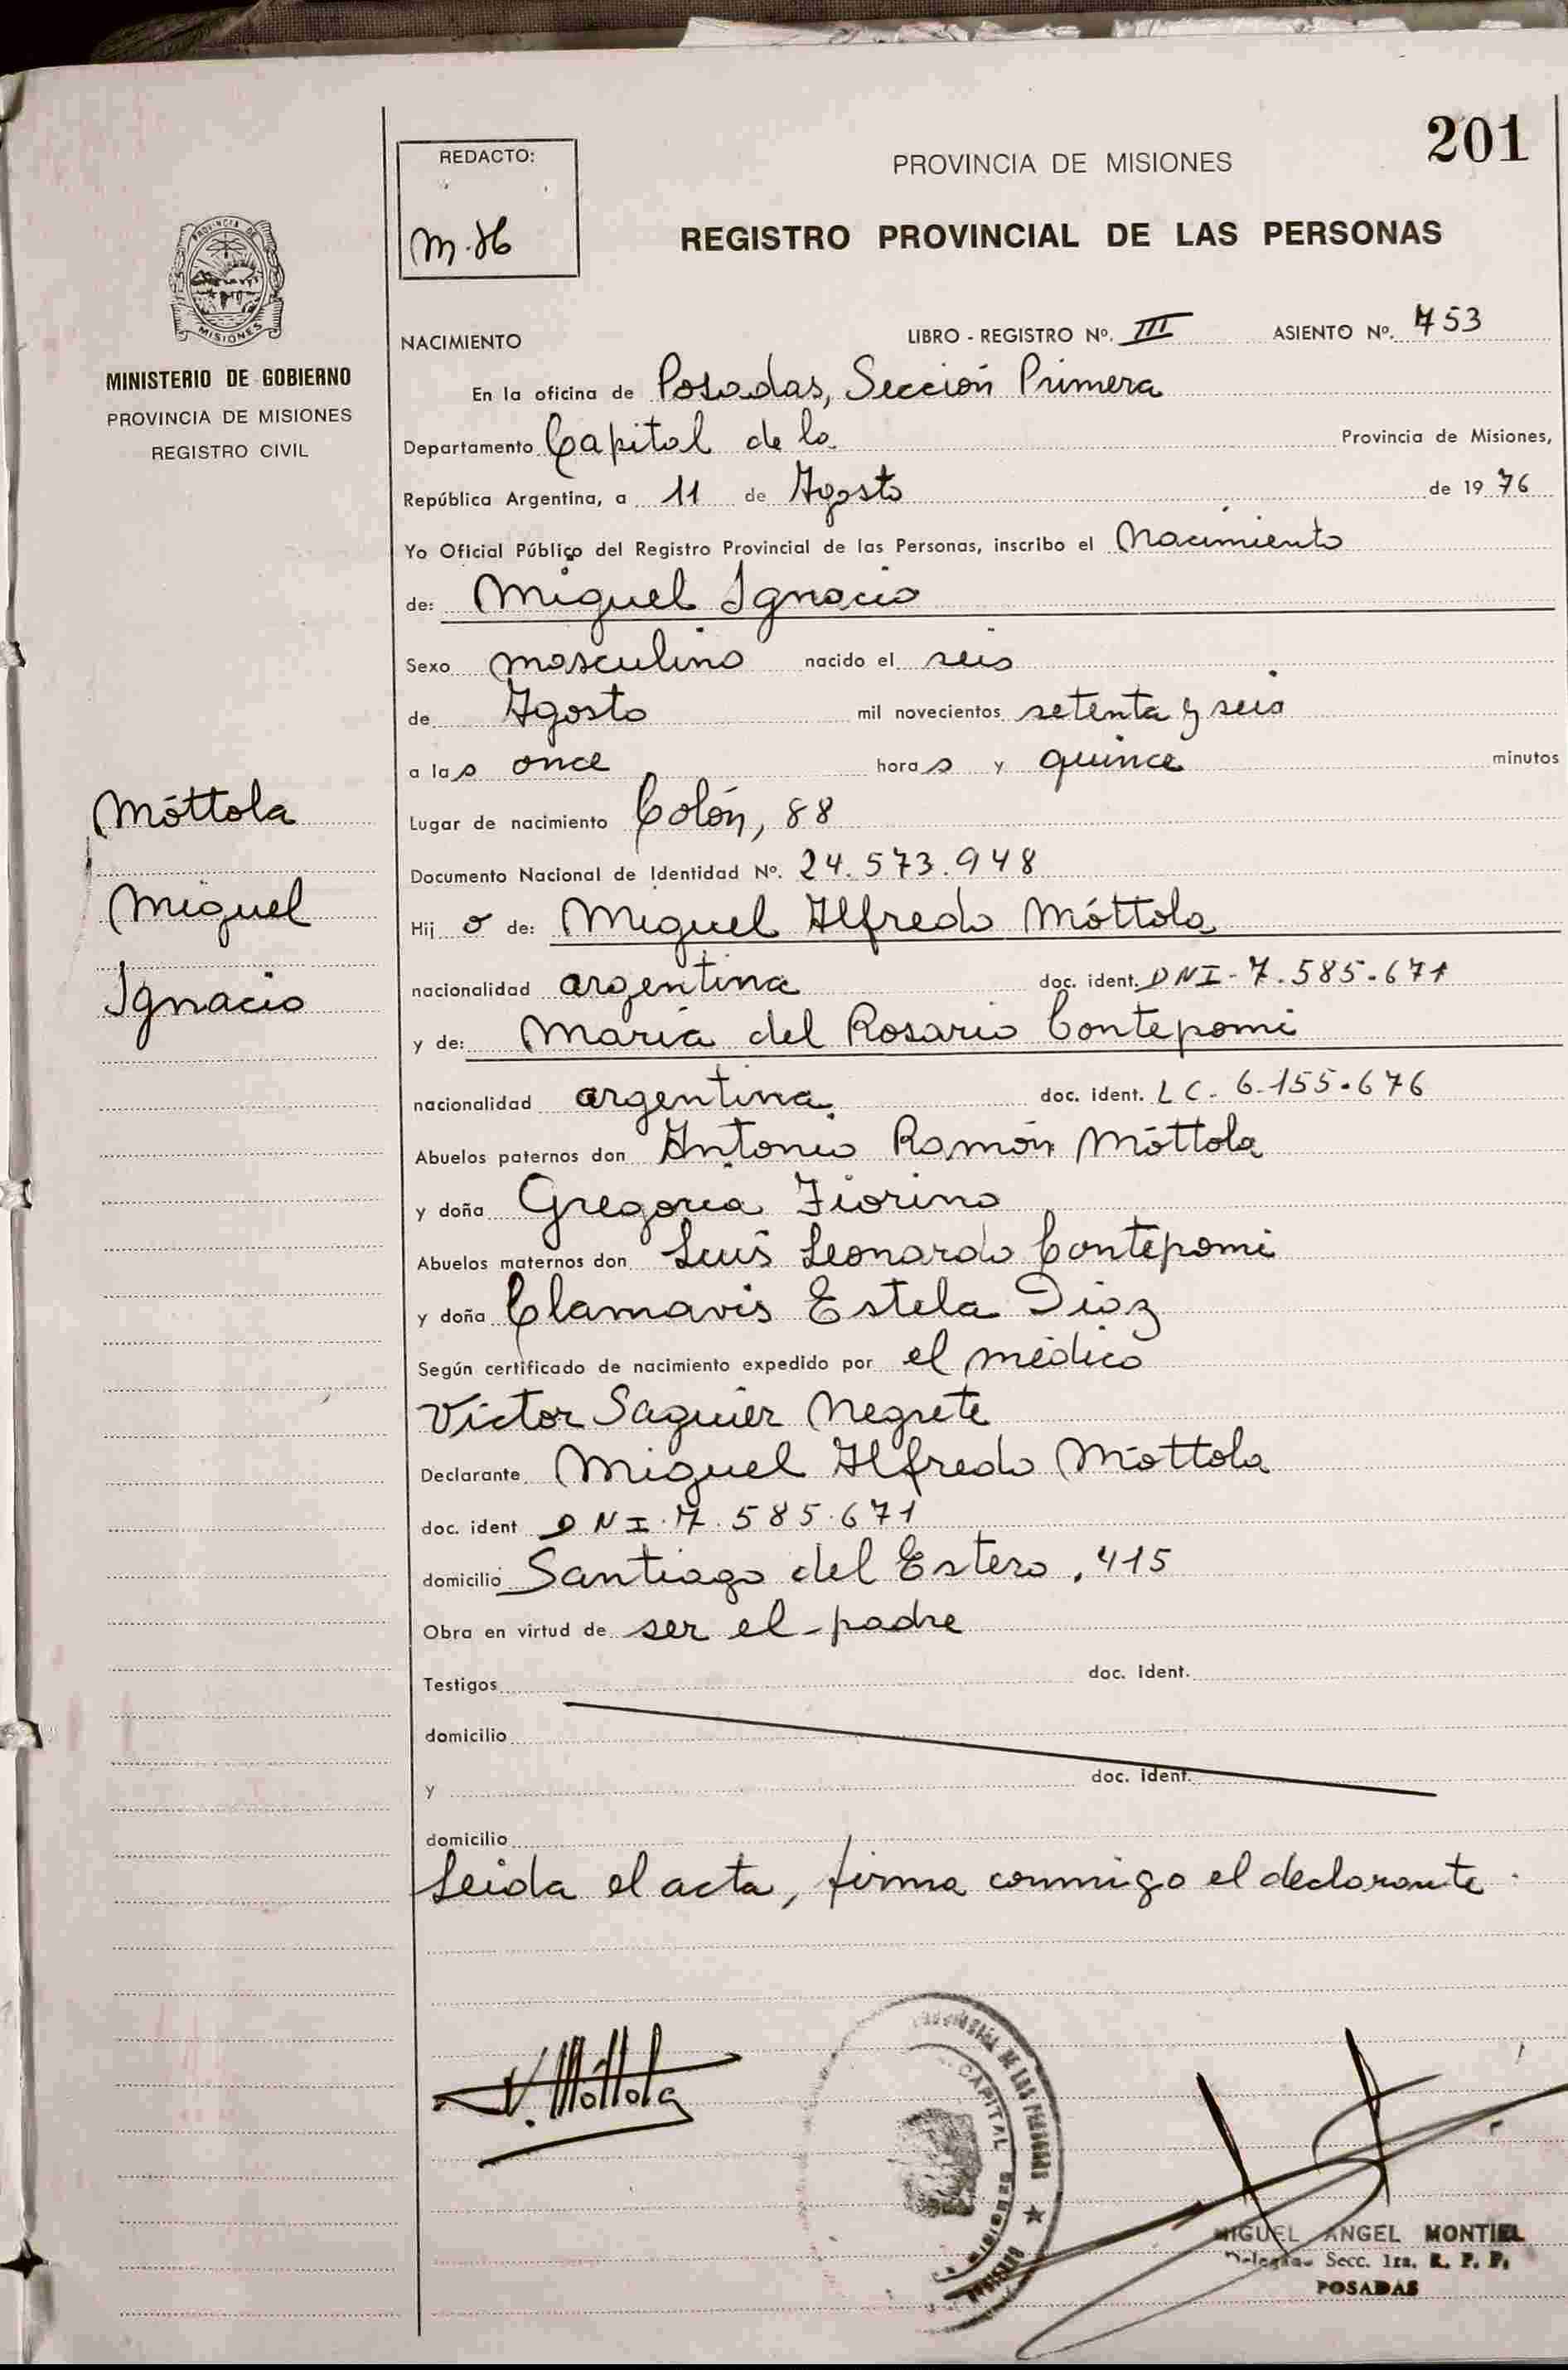 201
REDACTO:
M.H
PROVINCIA DE MISIONES
REGISTRO PROVINCIAL DE LAS PERSONAS
PROVINCIA DE
MISIONES
MINISTERIO DE GOBIERNO
PROVINCIA DE MISIONES
REGISTRO CIVIL
NACIMIENTO LIBRO - REGISTRO Nº. III ASIENTO Nº. 753
En la oficina de Posadas, Sección Primera
Departamento Capital de la Provincia de Misiones,
República Argentina, a 11 de Agosto de 1976
Yo Oficial Público del Registro Provincial de las Personas, inscribo el Nacimiento
de: Miguel Ignacio
Sexo masculino nacido el seis
de Agosto mil novecientos setenta y seis
a las once horas y quince minutos
Móttola
Miguel
Ignacio
Lugar de nacimiento Colón, 88
Documento Nacional de Identidad Nº. 24.573.948
Hijo de: Miguel Alfredo Móttola
nacionalidad argentina doc. ident. DNI-7.585.671
y de: María del Rosario Contepomi
nacionalidad argentina doc. ident. LC. 6.155.676
Abuelos paternos don Antonio Ramón Móttola
y doña Gregoria Fiorino
Abuelos maternos don Luis Leonardo Contepomi
y doña Clamavis Estela Diaz
Según certificado de nacimiento expedido por el médico
Víctor Saguier Negrete
Declarante Miguel Alfredo Móttola
doc. ident DNI.7.585.671
domicilio Santiago del Estero, 415
Obra en virtud de ser el padre
Testigos doc. ident.
domicilio
y doc. ident.
domicilio
Leida el acta, firma conmigo el declarante.
Móttola
CAPITAL
MIGUEL ANGEL MONTIEL
Delegado Secc. 1ra. R. P. P.
POSADAS